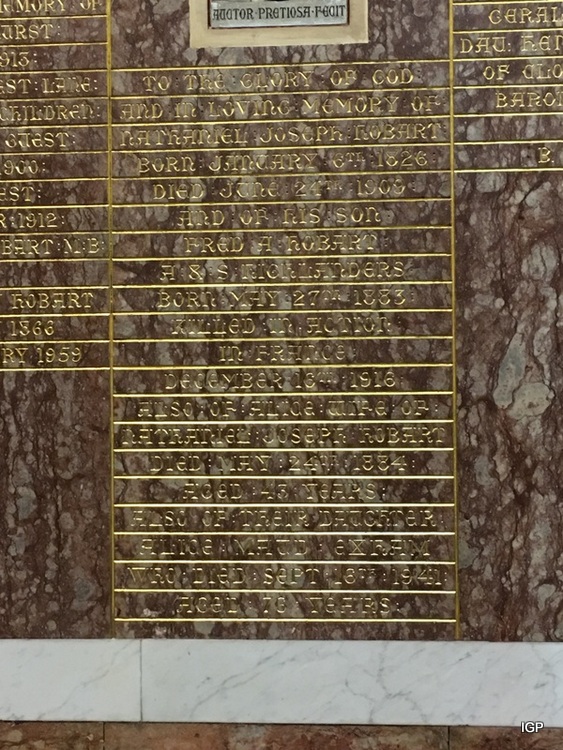 AUCTOR PRETIOSA FECIT
TO THE GLORY OF GOD
AND IN LOVING MEMORY OF
NATHANIEL JOSEPH HOBART
BORN JANUARY 6TH 1826
DIED JUNE 24TH
AND OF HIS SON
FRED A HOBART
A & S HIGHLANDERS
BORN MAY 27TH 1883
KILLED IN ACTION
IN FRANCE
DECEMBER 1916
ALSO OF ALICE WIFE OF
NATHANIEL JOSEPH HOBART
DIED MAY 24TH 1884
AGED YEARS
ALSO OF THEIR DAUGHTER
ALICE MAUD EXHAM
WHO DIED SEPT 1941
AGED YEARS
MEMORY OF
HURST:
1913:
EST LANE:
CHILDREN:
GUEST:
1900:
EST:
R 1912:
OBART M.B:
HOBART
1866
RY 1959
GERAL
DAU: HEN
OF GLO
BARON
B.
IGP